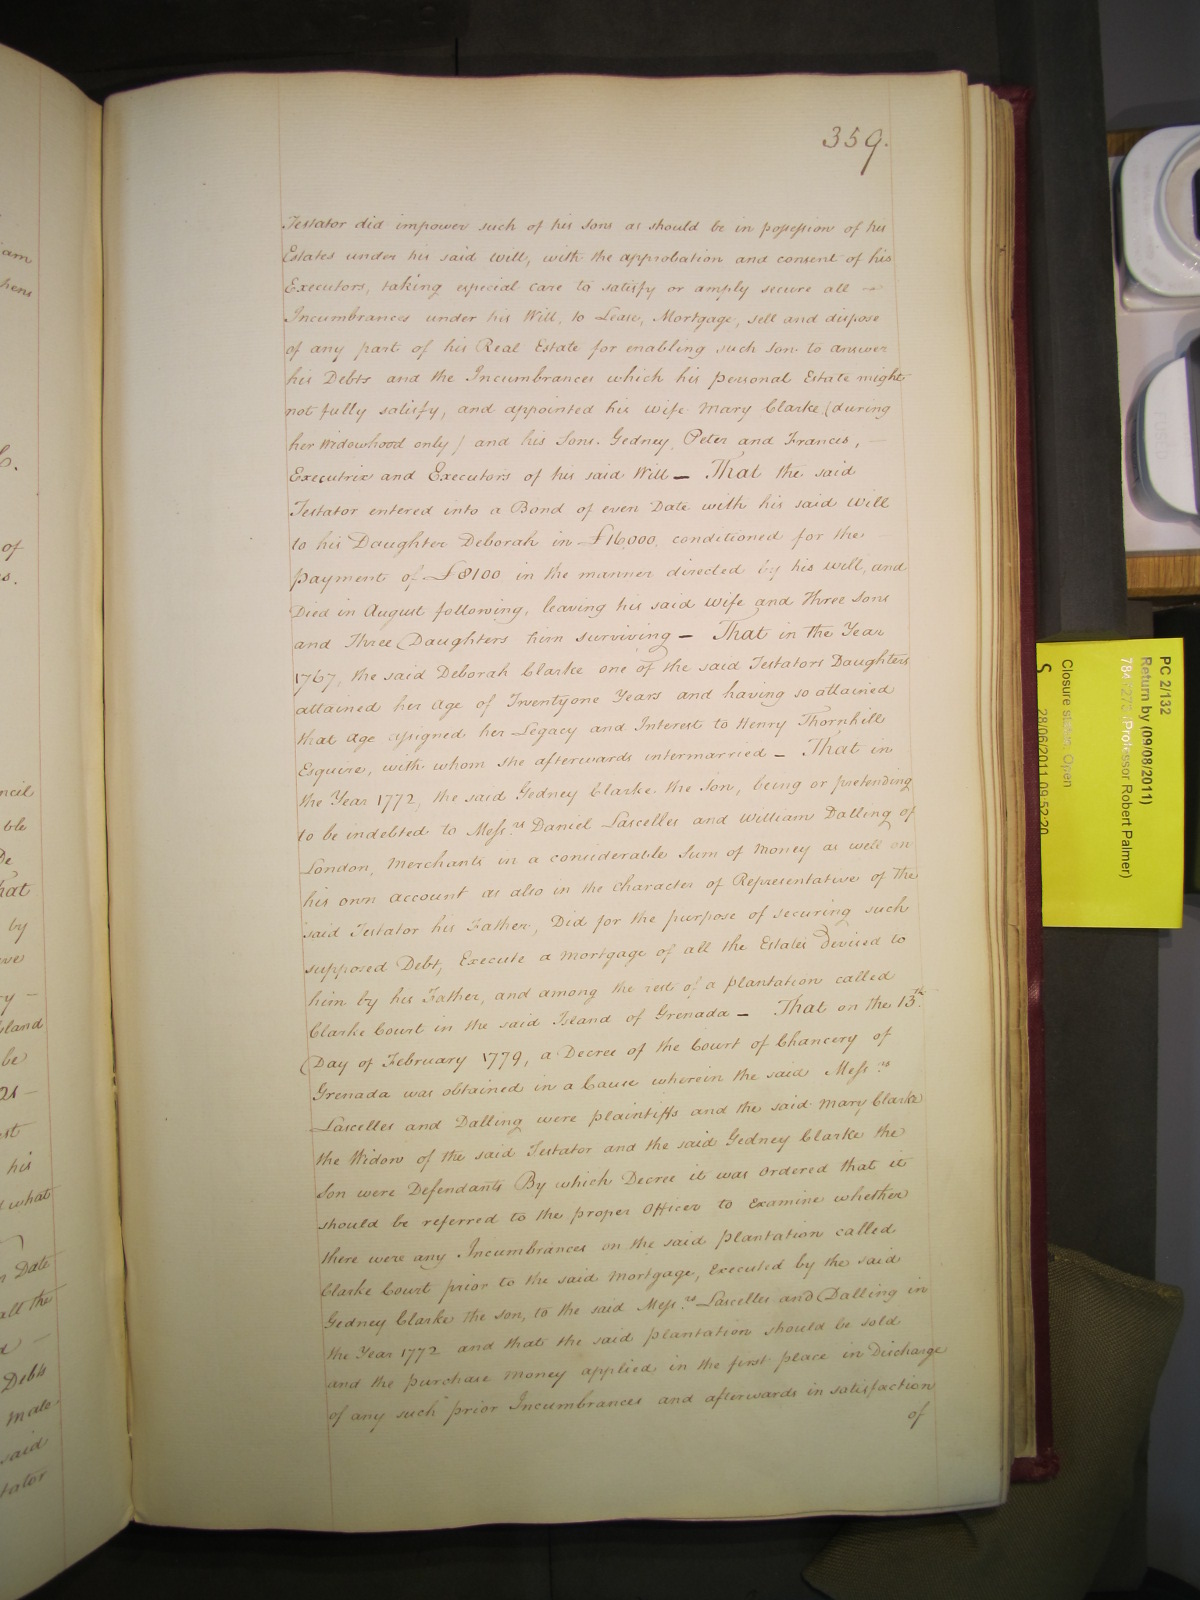 359.
Testator did impower such of his Sons as should be in possession of his
Estates under his said Will, with the approbation and consent of his
Executors, taking especial care to satisfy or amply secure all —
Incumbrances under his Will, to Lease, Mortgage, sell and dispose
of any part of his Real Estate for enabling such Son to answer
his Debts and the Incumbrances which his personal Estate might
not fully satisfy, and appointed his wife Mary Clarke (during
her Widowhood only) and his Sons Gedney, Peter and Francis, —
Executrix and Executors of his said Will — That the said
Testator entered into a Bond of even Date with his said Will
to his Daughter Deborah in £16,000, conditioned for the
payment of £8100 in the manner directed by his Will, and
Died in August following, leaving his said Wife and Three Sons
and Three Daughters him surviving — That in the Year
1767, the said Deborah Clarke one of the said Testators Daughters
attained her Age of Twentyone Years and having so attained
that Age assigned her Legacy and Interest to Henry Thornhill
Esquire, with whom she afterwards intermarried — That in
the Year 1772, the said Gedney Clarke the Son, being or pretending
to be indebted to Mess.rs Daniel Lascelles and William Dalling of
London, Merchants in a considerable Sum of Money as well on
his own account as also in the Character of Representative of the
said Testator his Father, Did for the purpose of securing such
supposed Debt, Execute a Mortgage of all the Estates Devised to
him by his Father, and among the rest of a plantation called
Clarke Court in the said Island of Grenada — That on the 13th
Day of February 1779, a Decree of the Court of Chancery of
Grenada was obtained in a Cause wherein the said Mess.rs
Lascelles and Dalling were plaintiffs and the said Mary Clarke
the Widow of the said Testator and the said Gedney Clarke the
Son were Defendants By which Decree it was Ordered that it
should be referred to the proper Officer to Examine whether
there were any Incumbrances on the said plantation called
Clarke Court prior to the said Mortgage, Executed by the said
Gedney Clarke the son, to the said Mess.rs Lascelles and Dalling in
the Year 1772 and that the said plantation should be sold
and the purchase Money applied in the first place in Discharge
of any such prior Incumbrances and afterwards in satisfaction
of
PC 2/132
Return by (09/08/2011)
Professor Robert Palmer)
Closure status: Open
S 28/06/2011 09:52:20